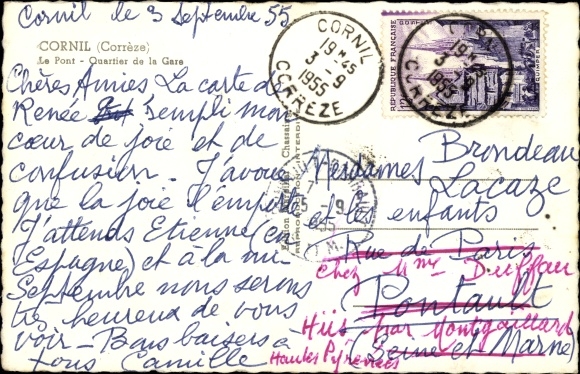 Cornil le 3 Septembre 55
CORNIL (Corrèze)
Le Pont - Quartier de la Gare
Chères Amies La carte de
Renée remplit mon
cœur de joie et de
confusion. J'avoue
que la joie l'emporte
J'attends Etienne (en
Espagne) et à la mi-
Septembre nous serons
très heureux de vous
voir - Bons baisers à
tous Camille
CORNIL
19H45
3-9
1955
CORREZE
REPUBLIQUE FRANÇAISE
POSTES
QUIMPER
19H45
3-9
1955
CORREZE
Mesdames Brondeau
Lacaze
et les enfants
Rue de Paris
Pontault
(Seine et Marne)
Chez Mme Duffau
Hiis par Montgaillard
Hautes Pyrénées